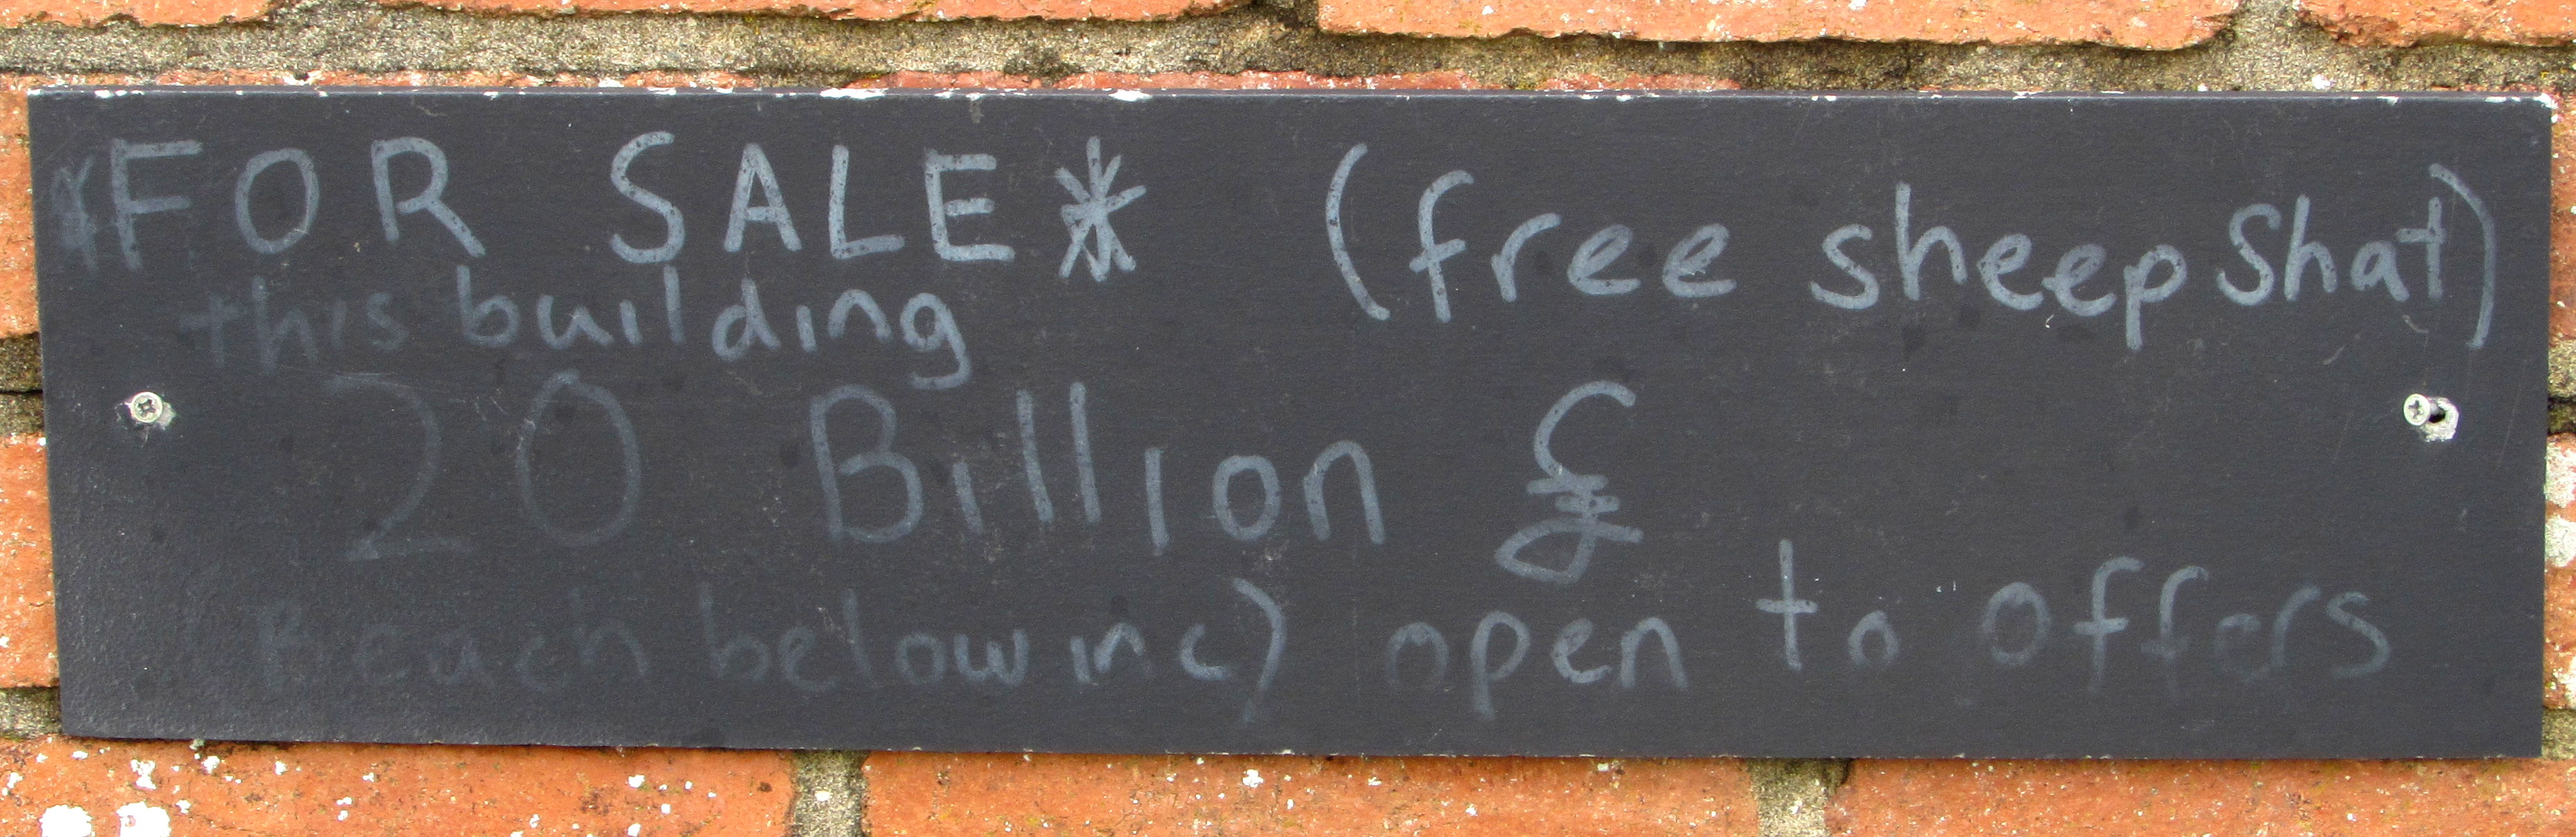 *FOR SALE* (free sheep Shat)
this building
20 Billion £
Beach below inc) open to offers